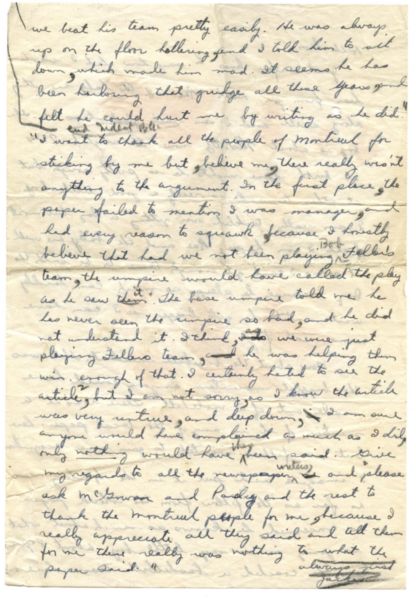 we beat his team pretty easily. He was always
up on the floor hollering, and I told him to sit
down, which made him mad. It seems he has
been harboring that grudge all these years and
felt he could hurt me by writing as he did."
end
"I want to thank all the people of Montreal for
sticking by me but, believe me, there really wasn't
anything to the argument. In the first place, the
paper failed to mention I was manager, and
had every reason to squawk, because I honestly
believe that had we not been playing Bob Feller's
team, the umpire would have called the play
as he saw it. The base umpire told me he
has never seen the umpire so bad, and he did
not understand it. I think, we were just
playing Fellers team, and he was helping them
win. enough of that. I certainly hated to see the
article, but I am not sorry, as I know the article
was very untrue, and deep down, I am sure
anyone would have complained as much as I did,
only nothing would have been said. Give
my regards to all the newspaper writers and please
ask McGowan and Pardy and the rest to
thank the Montreal people for me, because I
really appreciate all they said and tell them
for me there really was nothing to what the
paper said."
always